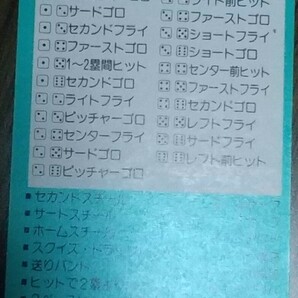 サードゴロ
セカンドフライ
ファーストゴロ
1〜2塁間ヒット
セカンドゴロ
ライトフライ
ピッチャーゴロ
センターフライ
サードゴロ
ピッチャーゴロ
ライト前ヒット
ファーストゴロ
ショートフライ
ショートゴロ
センター前ヒット
ファーストフライ
セカンドゴロ
レフトフライ
サードフライ
レフト前ヒット
■セカンドスチール
■サードスチール
■ホームスチール
■スクイズ・
■送りバント
■ヒットで2塁